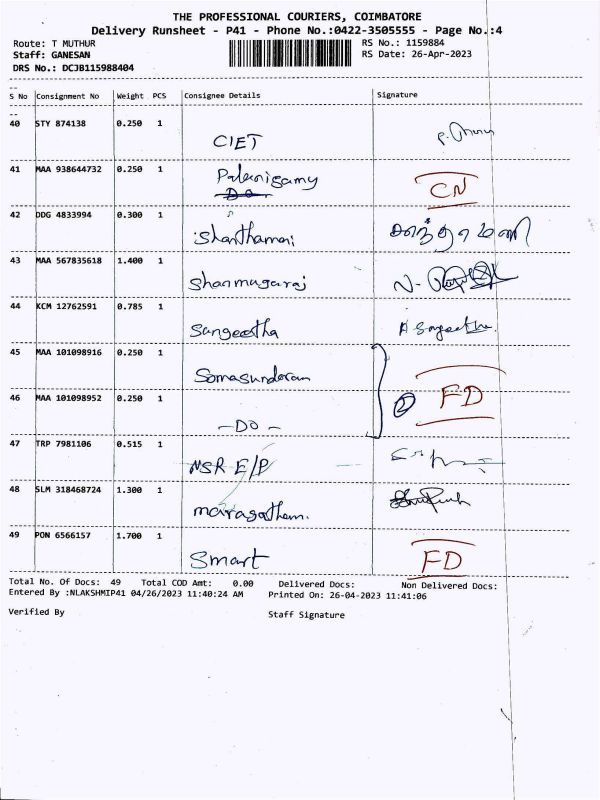 THE PROFESSIONAL COURIERS, COIMBATORE
Delivery Runsheet - P41 - Phone No.:0422-3505555 - Page No.:4
Route: T MUTHUR RS No.: 1159884
Staff: GANESAN RS Date: 26-Apr-2023
DRS No.: DCJB115988404
--
S No Consignment No Weight PCS Consignee Details Signature
--
40 STY 874138 0.250 1
CIET
41 MAA 938644732 0.250 1
Palanisamy CN
Do
42 DDG 4833994 0.300 1
Shanthamani சாந்தாமணி
43 MAA 567835618 1.400 1
Shanmugaraj
44 KCM 12762591 0.785 1
Sangeetha A Sangeetha
45 MAA 101098916 0.250 1
Somasundaram
46 MAA 101098952 0.250 1 2 FD
-Do-
47 TRP 7981106 0.515 1
NSR E/P
48 SLM 318468724 1.300 1
maragatham.
49 PON 6566157 1.700 1
Smart FD
Total No. Of Docs: 49 Total COD Amt: 0.00 Delivered Docs: Non Delivered Docs:
Entered By :NLAKSHMIP41 04/26/2023 11:40:24 AM Printed On: 26-04-2023 11:41:06
Verified By Staff Signature